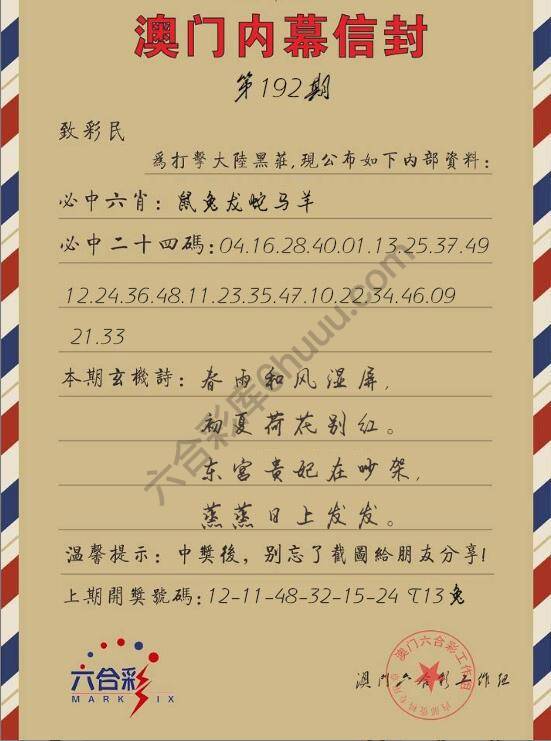 澳门内幕信封
第192期
致彩民
為打擊大陸黑莊,現公布如下内部資料:
必中六肖: 鼠兔龙蛇马羊
必中二十四碼:04.16.28.40.01.13.25.37.49
12.24.36.48.11.23.35.47.10.22.34.46.09
21.33
本期玄機詩: 春雨和风湿屏,
初夏荷花别红。
东宮貴妃在吵架,
蒸蒸日上发发。
温馨提示: 中獎後,别忘了截圖給朋友分享!
上期開獎號碼:12-11-48-32-15-24 T13兔
六合彩
MARK SIX
澳门六合彩工作组
澳门六合彩工作组
六合彩库@huuu.com